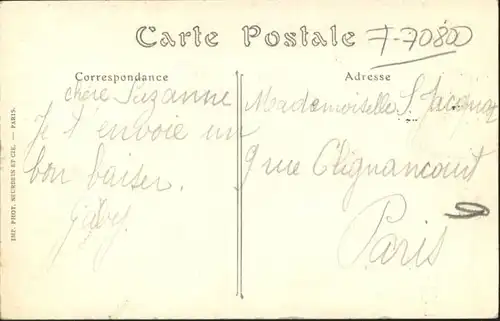 Carte Postale
7-7080
Correspondance
Adresse
chère Suzanne
Je t'envoie un
bon baiser.
Mademoiselle S.
9 rue Clignancourt
Paris
IMP. PHOT. NEURDEIN ET CIE. — PARIS.